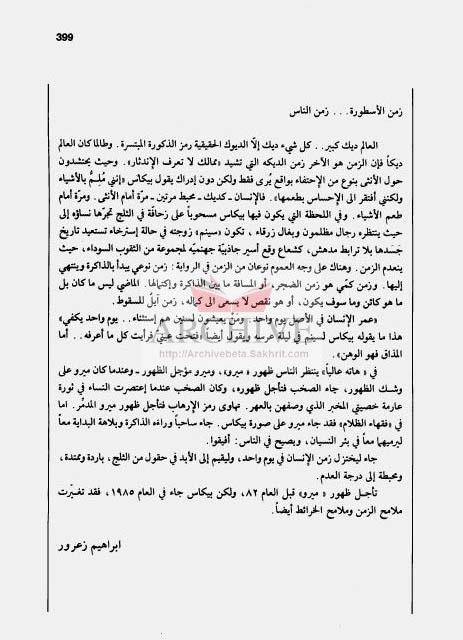 399
زمن الأسطورة... زمن الناس
العالم ديك كبير.. كل شيء ديك إلّا الديوك الحقيقية رمز الذكورة المبتسرة. وطالما كان العالم
ديكاً فإن الزمن هو الآخر زمن الديكه التي تشيد «ممالك لا تعرف الإندثار». وحيث يحتشدون
حول الأنثى بنوع من الإحتفاء بواقع يُرى فقط ولكن دون إدراك يقول بيكاس «إنني مُلِمٌّ بالأشياء
ولكنني أفتقر الى الإحساس بطعمها». فالإنسان ـ كديك ـ محبط مرتين ـ مرّة أمام الأنثى. ومرّة أمام
طعم الأشياء. وفي اللحظة التي يكون فيها بيكاس مسحوباً على زحافّة في الثلج تجرّها نساؤه إلى
حيث ينتظره رجال مظلمون وبغال زرقاء، تكون «سينم» زوجته في حالة إسترخاء تستعيد تاريخ
جسدها بلا ترابط مدهش، كشعاع وقع أسير جاذبيّة جهنميّه لمجموعة من الثقوب السوداء، حيث
ينعدم الزمن. وهناك على وجه العموم نوعان من الزمن في الرواية: زمن نوعي يبدأ بالذاكرة وينتهي
إليها. وزمن كمّي هو زمن الضجر، أو المسافة ما بين الذاكرة وإكتهالها. الماضي ليس ما كان بل
ما هو كائن وما سوف يكون، أو هو نقص لا يسعى الى كماله، زمن آيلٌ للسقوط.
«عمر الإنسان في الأصل يوم واحد. ومَنْ يعيشون لسنين هم إستثناء.. يوم واحد يكفي»
هذا ما يقوله بيكاس لسينم في ليلة عرسه ويقول أيضاً «فتحت عيني فرأيت كل ما أعرفه.. أما
المذاق فهو الوهن».
ARCHIVE
http://Archivebeta.Sakhrit.com
في «هاته عالياً» ينتظر الناس ظهور «ميرو»، وميرو مؤجل الظهور ـ وعندما كان ميرو على
وشك الظهور، جاء الصخب فتأجل ظهوره، وكان الصخب عندما إعتصرت النساء في ثورة
عارمة خصيتي المخبر الذي وصفهن بالعهر. تهاوى رمز الإرهاب فتأجل ظهور ميرو المدمّر. اما
في «فقهاء الظلام» فقد جاء ميرو على صورة بيكاس. جاء ساحباً وراءه الذاكرة وبلاهة البداية معاً
ليرميهما معاً في بئر النسيان، ويصيح في الناس: أفيقوا.
جاء ليختزل زمن الإنسان في يوم واحد، وليقيم إلى الأبد في حقول من الثلج، باردة وممتدة،
ومحبطة إلى درجة العدم.
تأجل ظهور «ميرو» قبل العام ٨٢، ولكن بيكاس جاء في العام ١٩٨٥، فقد تغيّرت
ملامح الزمن وملامح الخرائط أيضاً.
ابراهيم زعرور